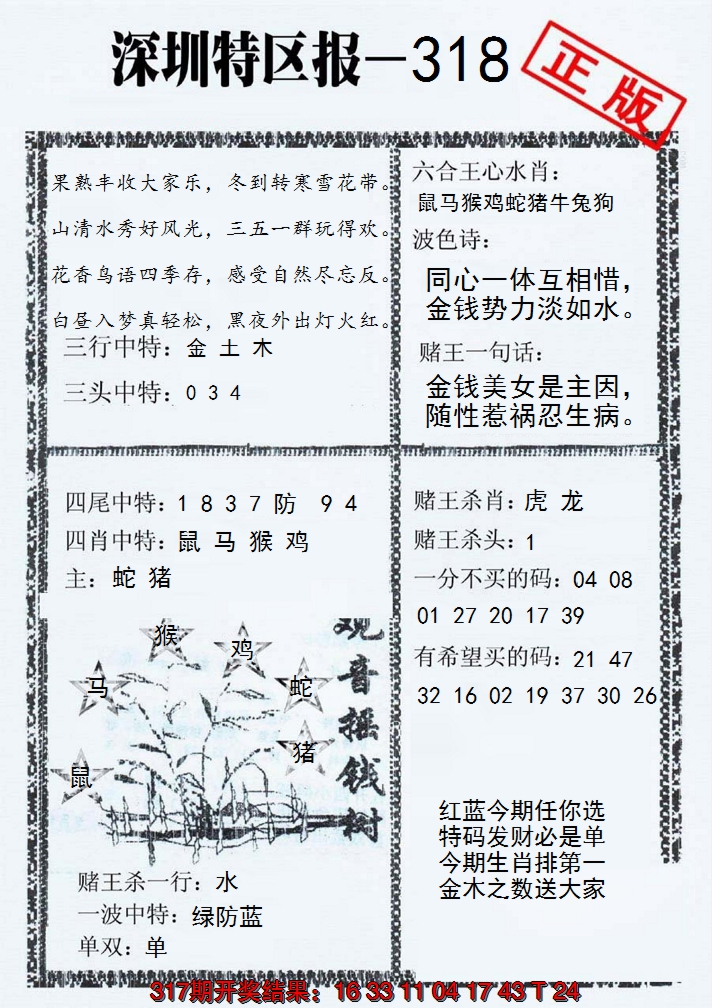 深圳特区报－318
正版
果熟丰收大家乐，冬到转寒雪花带。
山清水秀好风光，三五一群玩得欢。
花香鸟语四季存，感受自然尽忘反。
白昼入梦真轻松，黑夜外出灯火红。
三行中特：金 土 木
三头中特：0 3 4
六合王心水肖：
鼠马猴鸡蛇猪牛兔狗
波色诗：
同心一体互相惜，
金钱势力淡如水。
赌王一句话：
金钱美女是主因，
随性惹祸忍生病。
四尾中特：1 8 3 7 防 9 4
四肖中特：鼠 马 猴 鸡
主：蛇 猪
猴
鸡
马
蛇
猪
鼠
观音摇钱树
赌王杀一行：水
一波中特：绿防蓝
单双：单
赌王杀肖：虎 龙
赌王杀头：1
一分不买的码：04 08
01 27 20 17 39
有希望买的码：21 47
32 16 02 19 37 30 26
红蓝今期任你选
特码发财必是单
今期生肖排第一
金木之数送大家
317期开奖结果：16 33 11 04 17 43 T 24